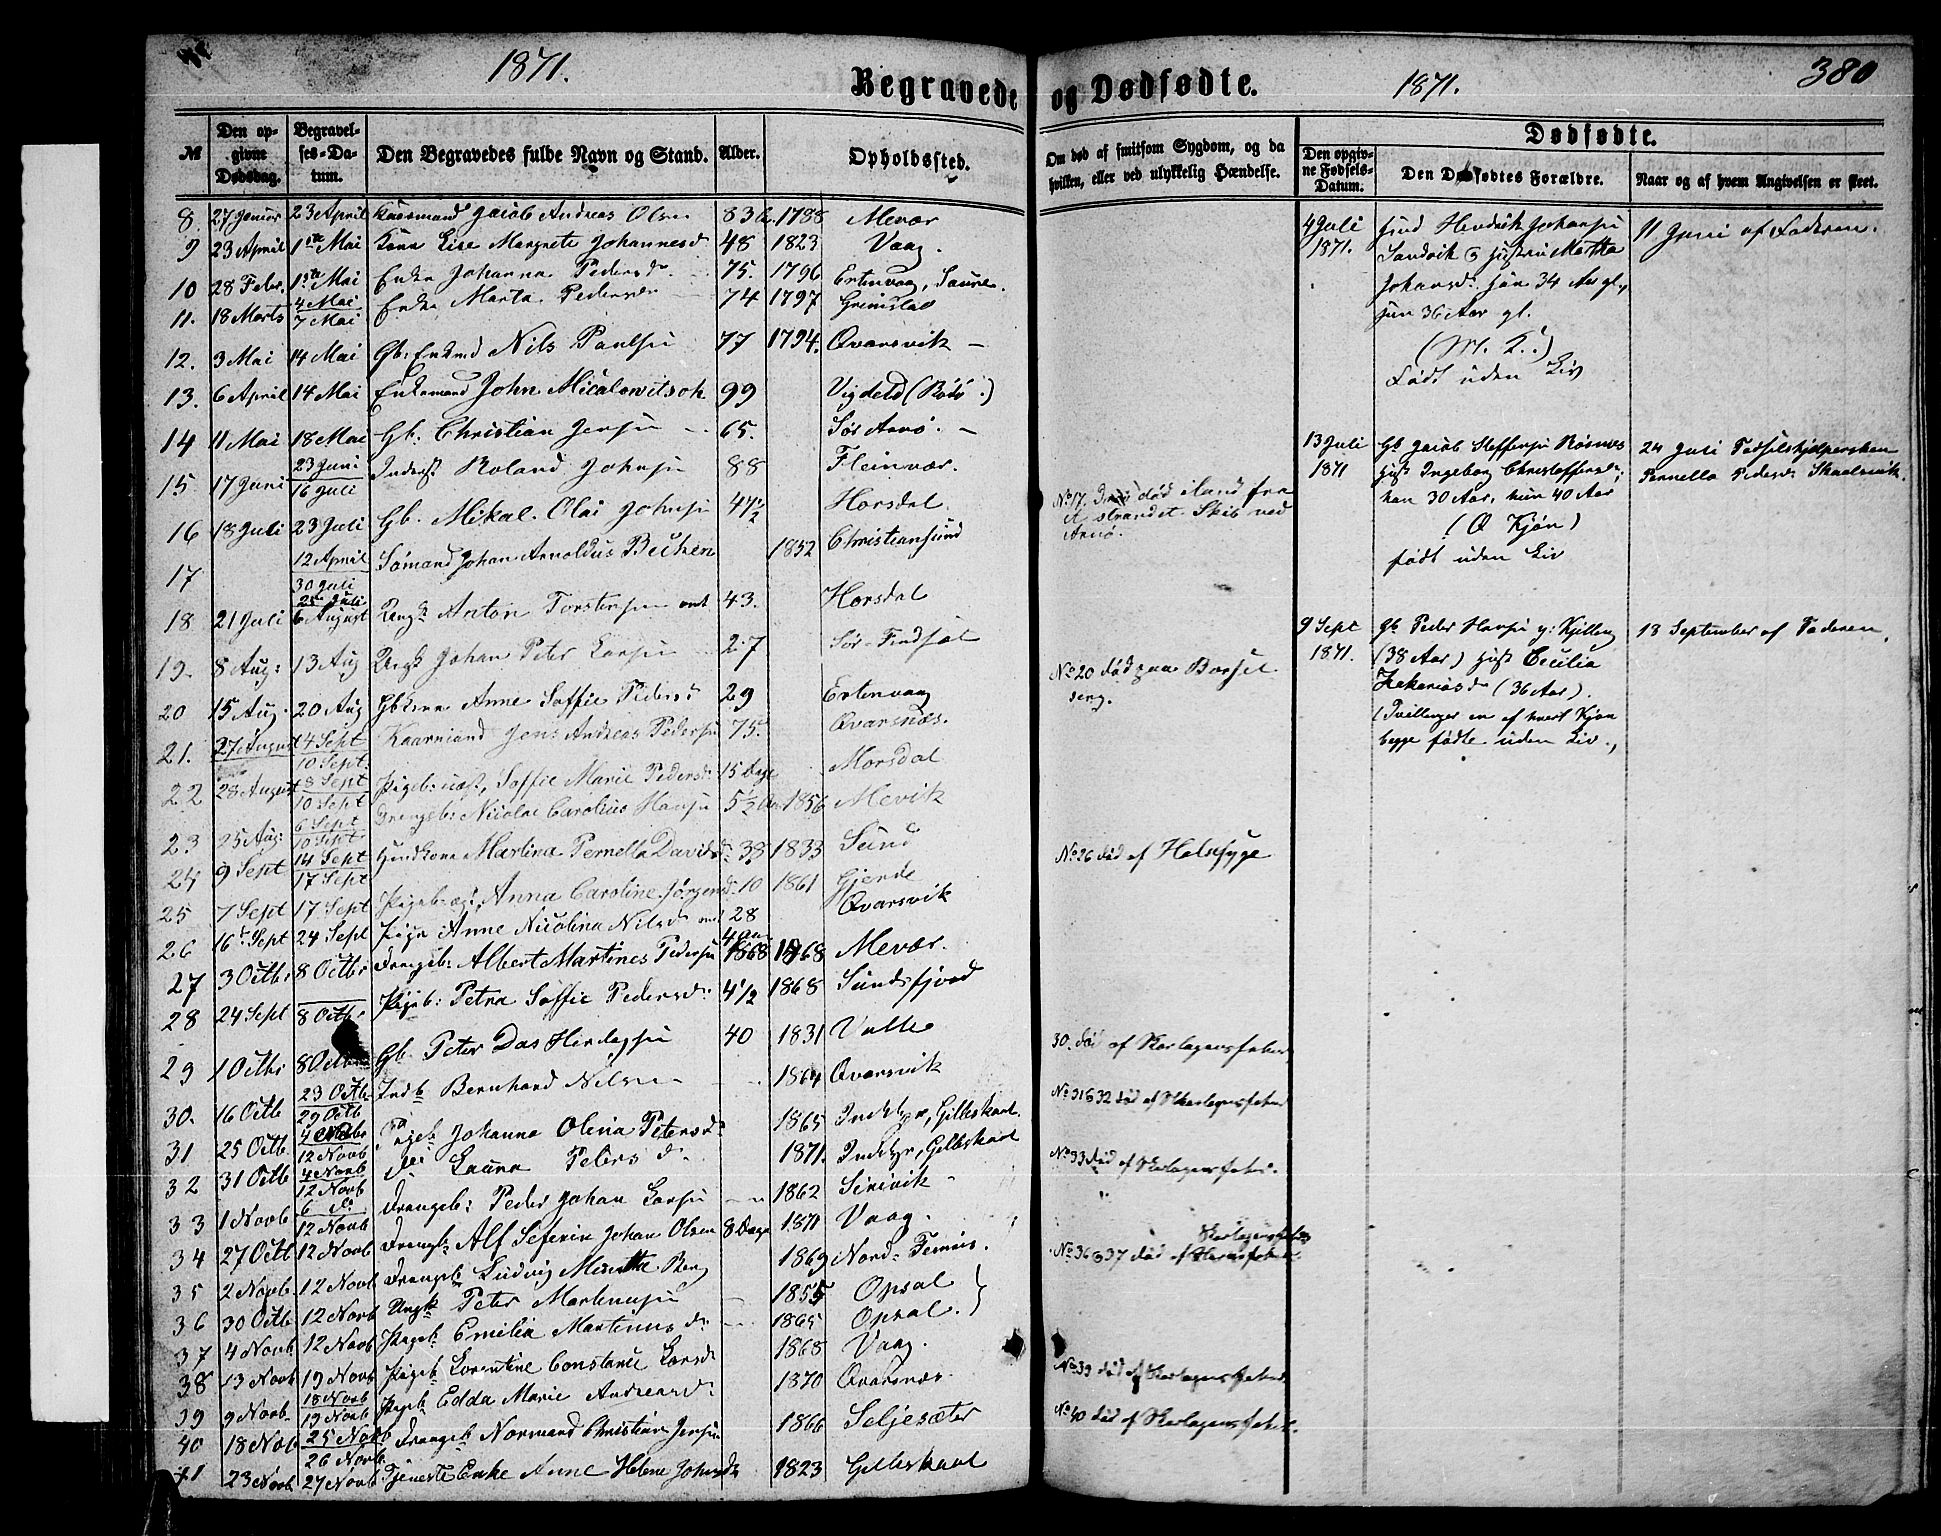 1871.
Begravede
og Dødfødte.
1871.
380
№
Den opgivne Dødsdag.
Begravelses-Datum.
Den Begravedes fulde Navn og Stand.
Alder.
Opholdssted.
Om død af smitsom Sygdom, og da hvilken, eller ved ulykkelig Hændelse.
Dødfødte.
Den opgivne Fødsels-Datum.
Den Dødfødtes Forældre.
Naar og af hvem Angivelsen er skeet.
8. 27 Januar 23 April Kaarmand Jacob Andreas Olsen 83 1788 Mevær
9 23 April 1ste Mai Kone Lise Margrete Johannesd 48 1823 Vaag.
10 28 Febr. 1ste Mai Enke Johanna Pedersdr 75. 1796 Ertenvaag, Saura.
11. 18 Marts 4 Mai 7 Mai Enke Marta Pedersdr 74 1797 Grimstad
12. 3 Mai 14 Mai Gb: Enkmd Nils Paulsen 77 1794. Qvarsvik
13. 6 April 14 Mai Enkemand John Micalowitsch 99 Vigdeld (Bodø.)
14 11 Mai 18 Mai Gb. Christian Jensen 65. Sør Arnø.
15 17 Juni 23 Juni 16 Juli Inderst Roland Johnsen 88 Fleinvær.
16 18 Juli 23 Juli Gb. Mikal Olai Johnsen 47½ Horsdal
17 12 April 30 Juli Sømand Johan Arnoldus 1852 Christiansund
18 21 Juli 25 Juli 6 August Ungk Anton Torstensen 43. Horsdal
19. 8 Aug: 13 Aug Ungk Johan Peter Larsen 27 Sør-Findsæt
20 15 Aug. 20 Aug Gbkone Anne Soffie Pedersd 29 Ertenvaag
21. 27 August 4 Sept 10 Sept. Kaarmand Jens Andreas Pedersen 75. Qvarsnæs.
22 28 August 8 Sept 10 Sept Pigeb: Soffie Marie Pedersd: 15 Dage Morsdal
23 25 Aug: 6 Sept 10 Sept Drengeb: Nicolai Carolius Hansen 5½ Aar 1856 Mevik
24 9 Sept 14 Sept 17 Sept Martina Pernella Davidsd: 38 1833 Sund
25 7 Sept 17 Sept Pigeb: Anna Caroline Jørgensd. 10 1861 Gjerde
26 16 Sept 24 Sept Pige Anne Nicolina Nilsd 28 Qvarsvik
27 3 Octbr 8 Octbr Drengeb: Albert Martines Pedersen 4 Aar 1868 1868 Mevær.
28 24 Sept 8 Octbr Pigeb: Petra Soffie Pedersd: 4½ 1868 Sundsfjord
29 1 Octbr 8 Octbr Gb. Peter Das 40 1831 Valle
30. 16 Octb 23 Octb 29 Octb Indb Bernhard Nilsen 1864 Qvarsvik
31 25 Octb 4 Novb 12 Novb Pigeb Johanna Olina Petersd: 1865 Inddyr, Gilleskaal.
32 31 Octb 4 Novb 12 Novb Laura Petersd: 1871. Inddyr, Gilleskaal
33 1 Novb 6 D: 12 Novb Drengeb: Peder Johan Larsen 1862 Sinivik
34 27 Octb 12 Novb Drengeb: Alf Seferin Johan Olsen 8 Dage 1871 Vaag.
35 2 Novb 12 Novb Drengeb: Ludvig Berg 1869 Nord-
36 30 Octb 12 Novb Ungk Peter Martinusen 1855 Opsal
37 4 Novb 12 Novb Pigeb Emilia Martinusd: 1865 Opsal.
38 13 Novb 19 Novb Pigeb Lorentine Constance Larsd: 1868 Vaag.
39 9 Novb 18 Novb 19 Novb Pigeb Edda Marie Andreasd: 1870 Qvarsnæs
40 18 Novb 25 Novb 26 Novb Drengeb Normand Christian Jensen 1866 Seljesæter
41 23 Novb 27 Novb Tjeneste Enke Anne Helene Johnsdr 1823 Gilleskaal
No 17. død iland fra et strandet Skib ved Arnø.
No 20 død paa Barselseng.
No 26 død af Halssyge
30. død af Skarlagensfeber
No 31 & 32 død af Skarlagensfeber
No 33 død af Skarlagensfeber.
No 36 & 37 død af Skarlagensfeber
No 39 død af Skarlagensfeber
No 40 død af Skarlagensfeber.
4 Juli 1871.
Hendrik Johansen
Sandvik & Hustru Martha
Johansd: han 34 Aar gl.,
hun 36 Aar gl.
(M. K.)
Født uden Liv
11 Juni af Faderen.
13 Juli 1871
Gb Jacob Steffensen Røsnes
Hust Ingeborg Christoffersdr;
han 30 Aar, hun 40 Aar
(Q Kjøn)
født uden Liv
24 Juli Fødselshjelpersken
Pernella Pedersdr Skaalsvik
9 Sept 1871.
Gb. Peder Hansen Kjelling
(38 Aar) Hust Cecilia
Zakariasdr (36 Aar).
(Tvillinger en af hvert Kjøn
begge fødte uden Liv.
13 September af Faderen.